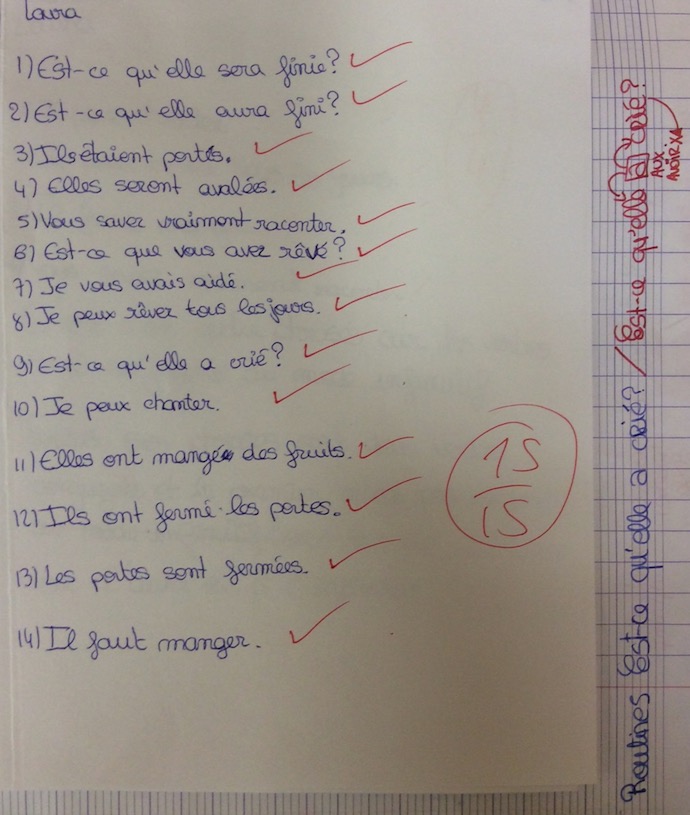 Laura
1) Est-ce qu'elle sera finie?
2) Est-ce qu'elle aura fini?
3) Ils étaient portés.
4) Elles seront avalées.
5) Vous savez vraiment raconter.
6) Est-ce que vous avez rêvé?
7) Je vous avais aidé.
8) Je peux rêver tous les jours.
9) Est-ce qu'elle a crié?
10) Je peux chanter.
11) Elles ont mangé des fruits.
12) Ils ont fermé les portes.
13) Les portes sont fermées.
14) Il faut manger.
15
15
Routines Est-ce qu'elle a crié? / Est-ce qu'elle a crié?
AUX
AVOIR